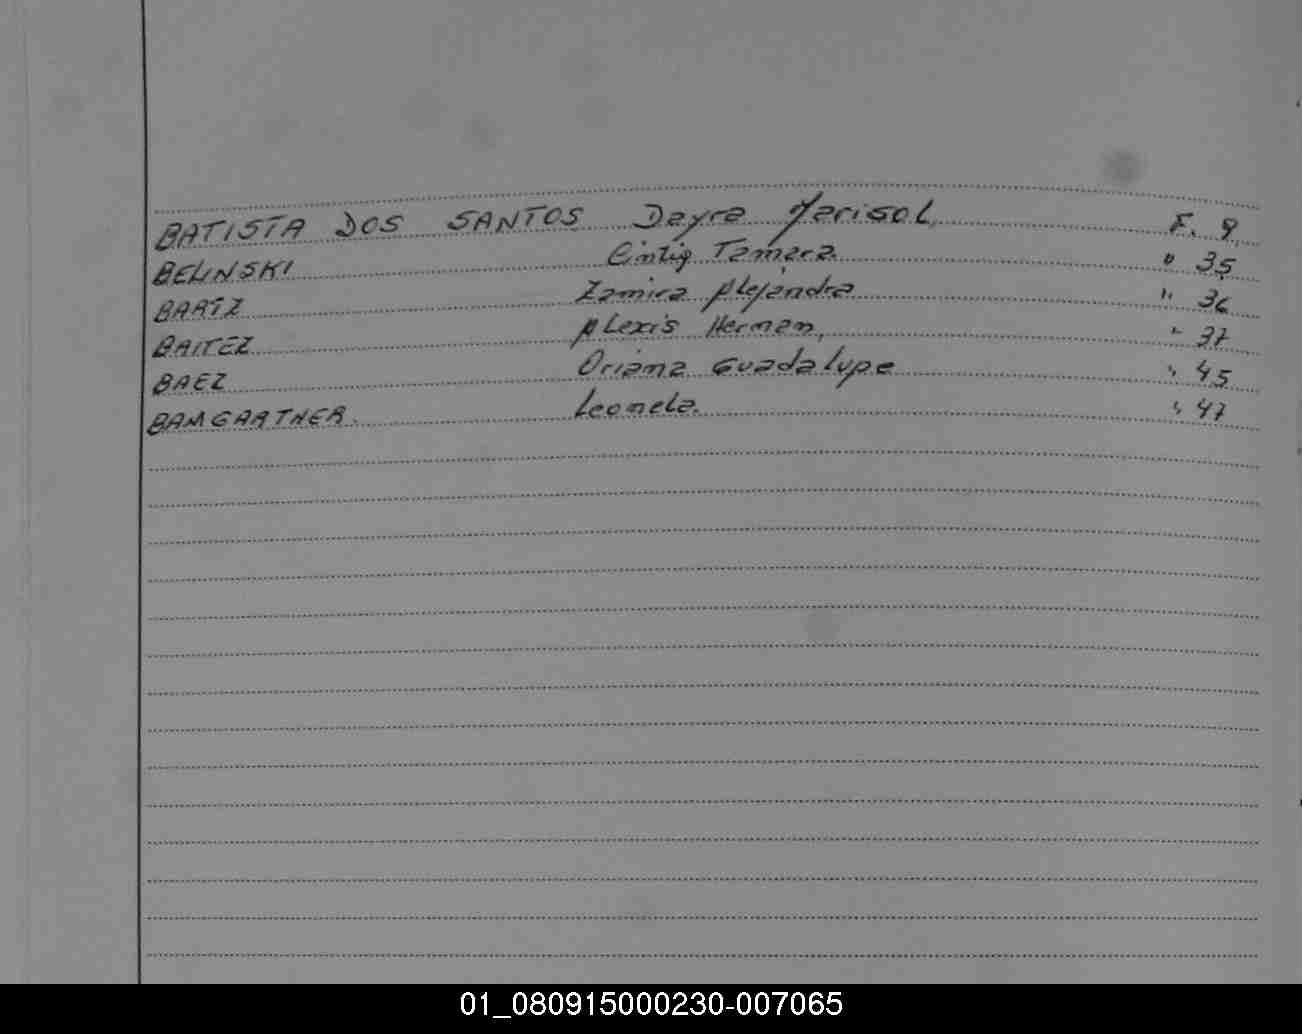 BATISTA DOS SANTOS Dayra Marisol F. 9
BELINSKI Cintia Tamara " 35
BARTZ Zamira Alejandra " 36
BAITEZ Alexis Herman " 37
BAEZ Oriana Guadalupe " 45
BAMGARTNER. Leonela. " 47
01_080915000230-007065